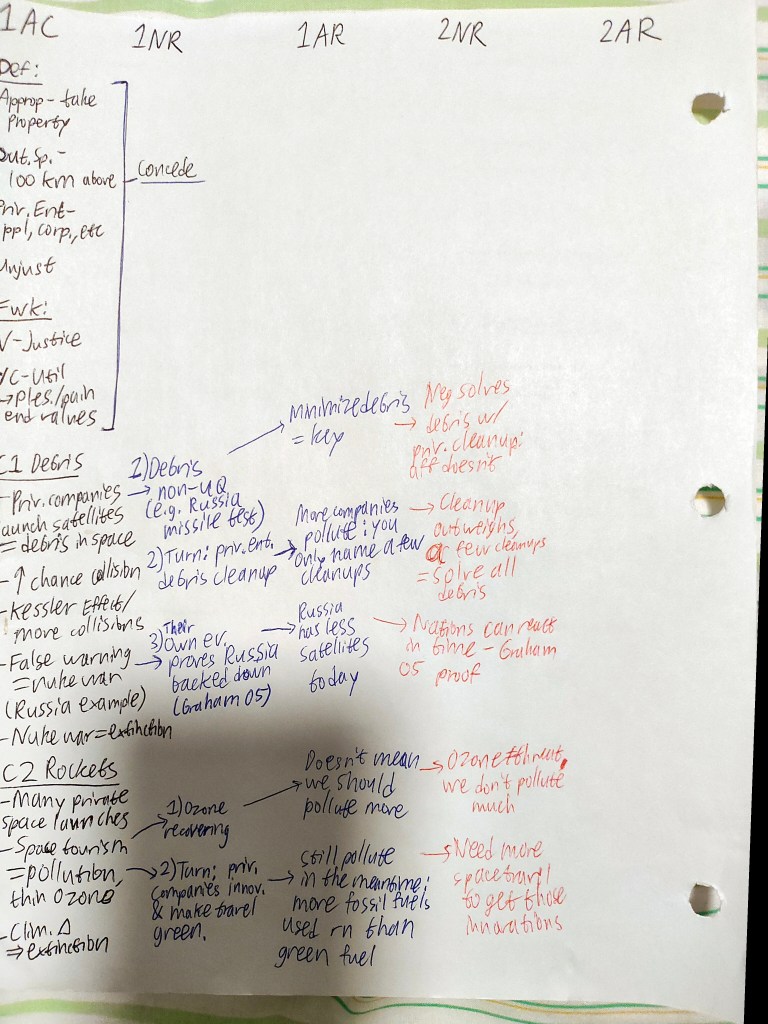 1AC
1NR
1AR
2NR
2AR
Def:
Approp - take
property
Out. Sp. -
100 km above
Priv. Ent -
ppl, corp., etc
Unjust
Fwk:
V - Justice
VC - Util
→ Ples./pain
end values
Concede
C1 Debris
- Priv. companies
launch satellites
= debris in space
- ↑ chance collision
- Kessler Effect/
more collisions
- False warning
= nuke war
(Russia example)
- Nuke war = extinction
1) Debris
non-UQ
(e.g. Russia
missile test)
2) Turn: priv. ent.
debris cleanup
3) Their
own ev.
proves Russia
backed down
(Graham 05)
Minimize debris
= key
More companies
pollute; you
only name a few
cleanups
Russia
has less
satellites
today
Neg solves
debris w/
priv. cleanup;
aff doesn't
Cleanup
outweighs,
a few cleanups
= solve all
debris
Nations can react
in time - Graham
05 proof
C2 Rockets
- Many private
space launches
- Space tourism
= pollution,
thin ozone
- Clim. Δ
⇒ extinction
1) Ozone
recovering
2) Turn: priv.
companies innov.
& make travel
green.
Doesn't mean
we should
pollute more
still pollute
in the meantime;
more fossil fuels
used rn than
green fuel
Ozone ≠ threat,
we don't pollute
much
Need more
space travel
to get those
innovations